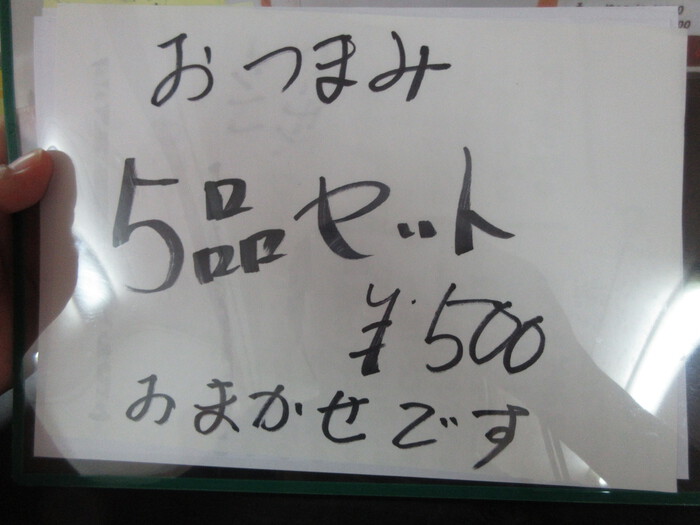 おつまみ
5品セット
¥500
おまかせです